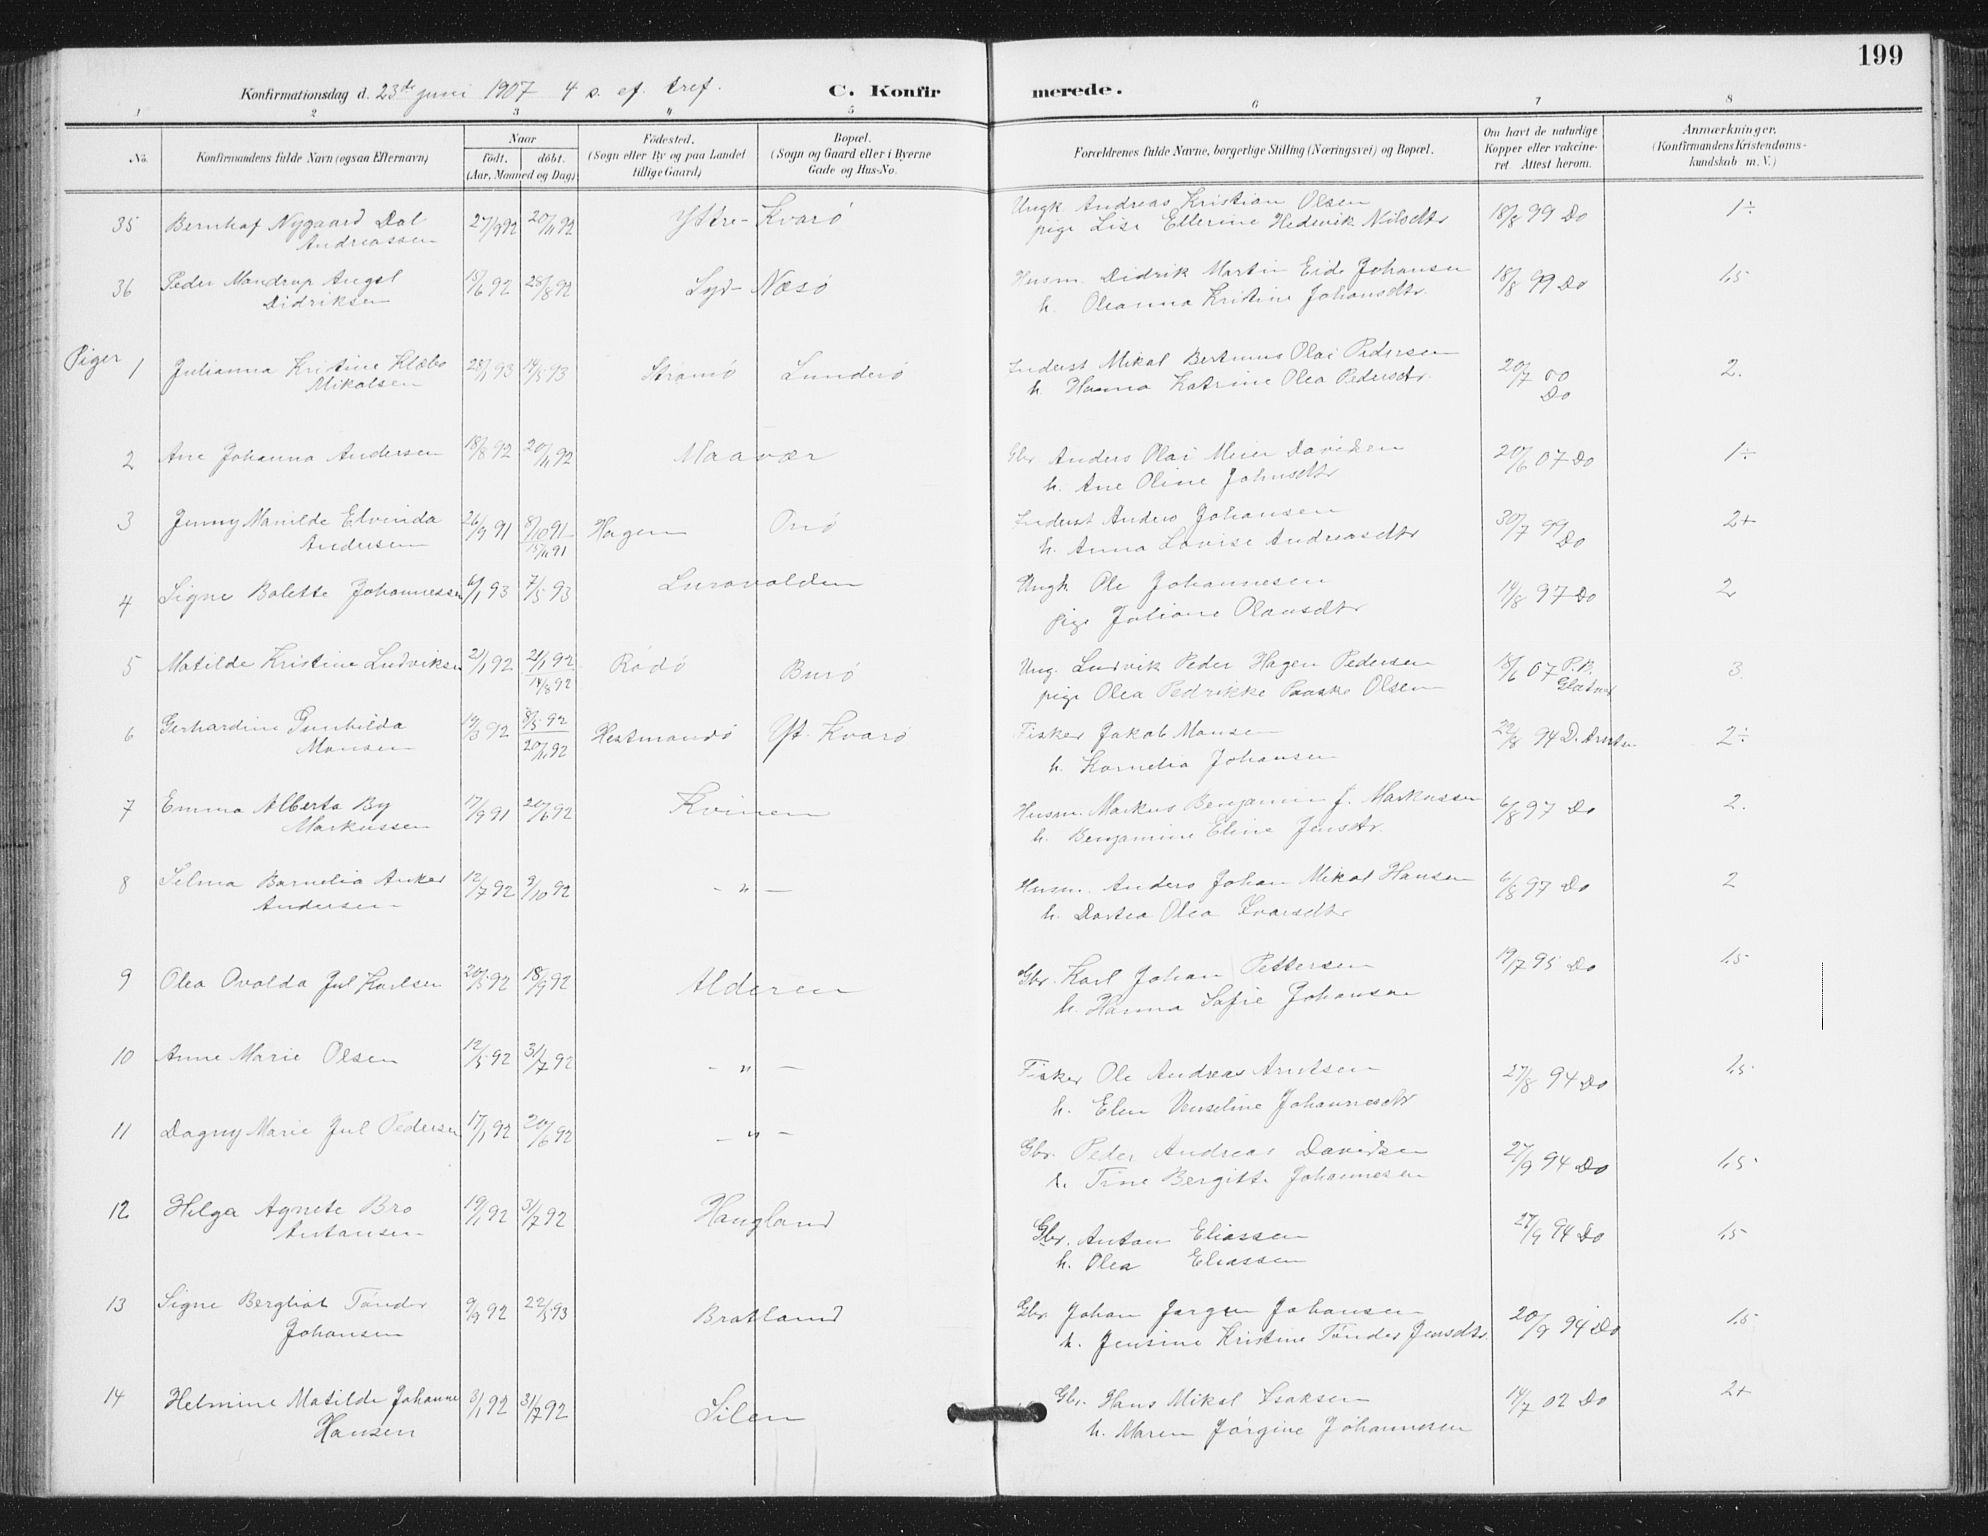 199
Konfirmationsdag d. 23de juni 1907 4 s. ef. tref. C. Konfirmerede.
1 2 3 4 5 6 7 8
No. Konfirmandens fulde Navn (ogsaa Efternavn) Naar født. døbt. (Aar, Maaned og Dag) Fødested. (Sogn eller By og paa Landet tillige Gaard) Bopæl. (Sogn og Gaard eller i Byerne Gade og Hus-No. Forældrenes fulde Navne, borgerlige Stilling (Næringsvei) og Bopæl. Om havt de naturlige Kopper eller vakcineret. Attest herom. Anmærkninger. (Konfirmandens Kristendomskundskab m. V.)
35 Bernhof Nygaard Dal 27/9 92 20/11 92 Ytöre-Kvarö Ungk. Andreas Kristian Olsen 18/8 99 Do 1÷
Andreassen pige Lise Ellerine Hedevik Nilsdtr
36 Peder Mandrup Angel 15/6 92 28/8 92 Syd-Næsö Husm. Didrik Martin Eide Johansen 18/8 99 Do 1,5
Didriksen h. Oleanna Kristine Johansdtr.
Piger 1 Julianna Kristine Klæbo 28/1 93 14/5 93 Stromö Lunderö Inderst Mikal Bertinus Olai Pedersen 20/7 00 Do 2.
Mikalsen h. Hanna Katrine Olea Pedersdtr.
2 Ane Johanna Andersen 18/8 92 20/11 92 Maavær Gbr Anders Olai Meier Davidsen 20/6 07 Do 1÷
h. Ane Oline Johnsdtr
3 Jenny Manilde Elvinda 26/9 91 8/10 91 Hagen Onö Inderst Anders Johansen 30/7 99 Do 2+
Andersen 15/11 91 h. Anna Lovise Andreasdtr
4 Signe Bolette Johannessen 6/1 93 7/5 93 Lurovolden Ungk Ole Johannesen 14/8 97 Do 2
pige Juliane Olausdtr
5 Matilde Kristine Ludviksen 21/1 92 21/1 92 Rödö Burö Ung. Ludvik Peder Hagen Pedersen 18/6 07 P.B. 3.
14/8 92 pige Olea Pedrikke Olsen
6 Gerhardine Gunhilda 19/3 92 8/5 92 Hestmandö Yt. Kvarö Fisker Jakob Monsen 22/8 94 2÷
Monsen 20/11 92 h. Kornelia Johansen
7 Emma Alberta By 17/9 91 20/6 92 Kvinen Husm. Markus Benjamin J. Markussen 6/8 97 Do 2.
Markussen h. Benjamine Eline Jensdtr.
8 Selma Barnelia Anker 12/7 92 9/10 92 - " - Husm. Anders Johan Mikal Hansen 6/8 97 Do 2
Andersen h. Dortea Olea Ivarsdtr
9 Olea Ovalda Jul Karlsen 20/5 92 18/9 92 Alderen Gbr. Karl Johan Pettersen 19/7 95 Do 1,5
h. Hanna Sofie Johansen
10 Anne Marie Olsen 12/5 92 31/7 92 - " - Fisker Ole Andreas Arntsen 27/8 94 Do 1,5
h. Elen Venseline Johannesdtr
11 Dagny Marie Jul Pedersen 17/1 92 20/6 92 - " - Gbr. Peder Andreas Davidsen 27/9 94 Do 1,5
h. Tine Bergitte Johannesen
12 Helga Agnete Bro 19/1 92 31/7 92 Haugland Gbr. Anton Eliassen 27/9 94 Do 1,5
Antonsen h. Olea Eliassen
13 Signe Bergliot Tönder 9/9 92 22/5 93 Bratland Gbr Johan Jørgen Johansen 20/9 94 Do 1,5
Johansen h. Jensine Kristine Tönder Jensdtr.
14 Helmine Matilde Johanne 3/1 92 31/7 92 Silen Gbr. Hans Mikal Isaksen 14/7 02 Do 2+
Hansen h. Maren Jörgine Johannesen